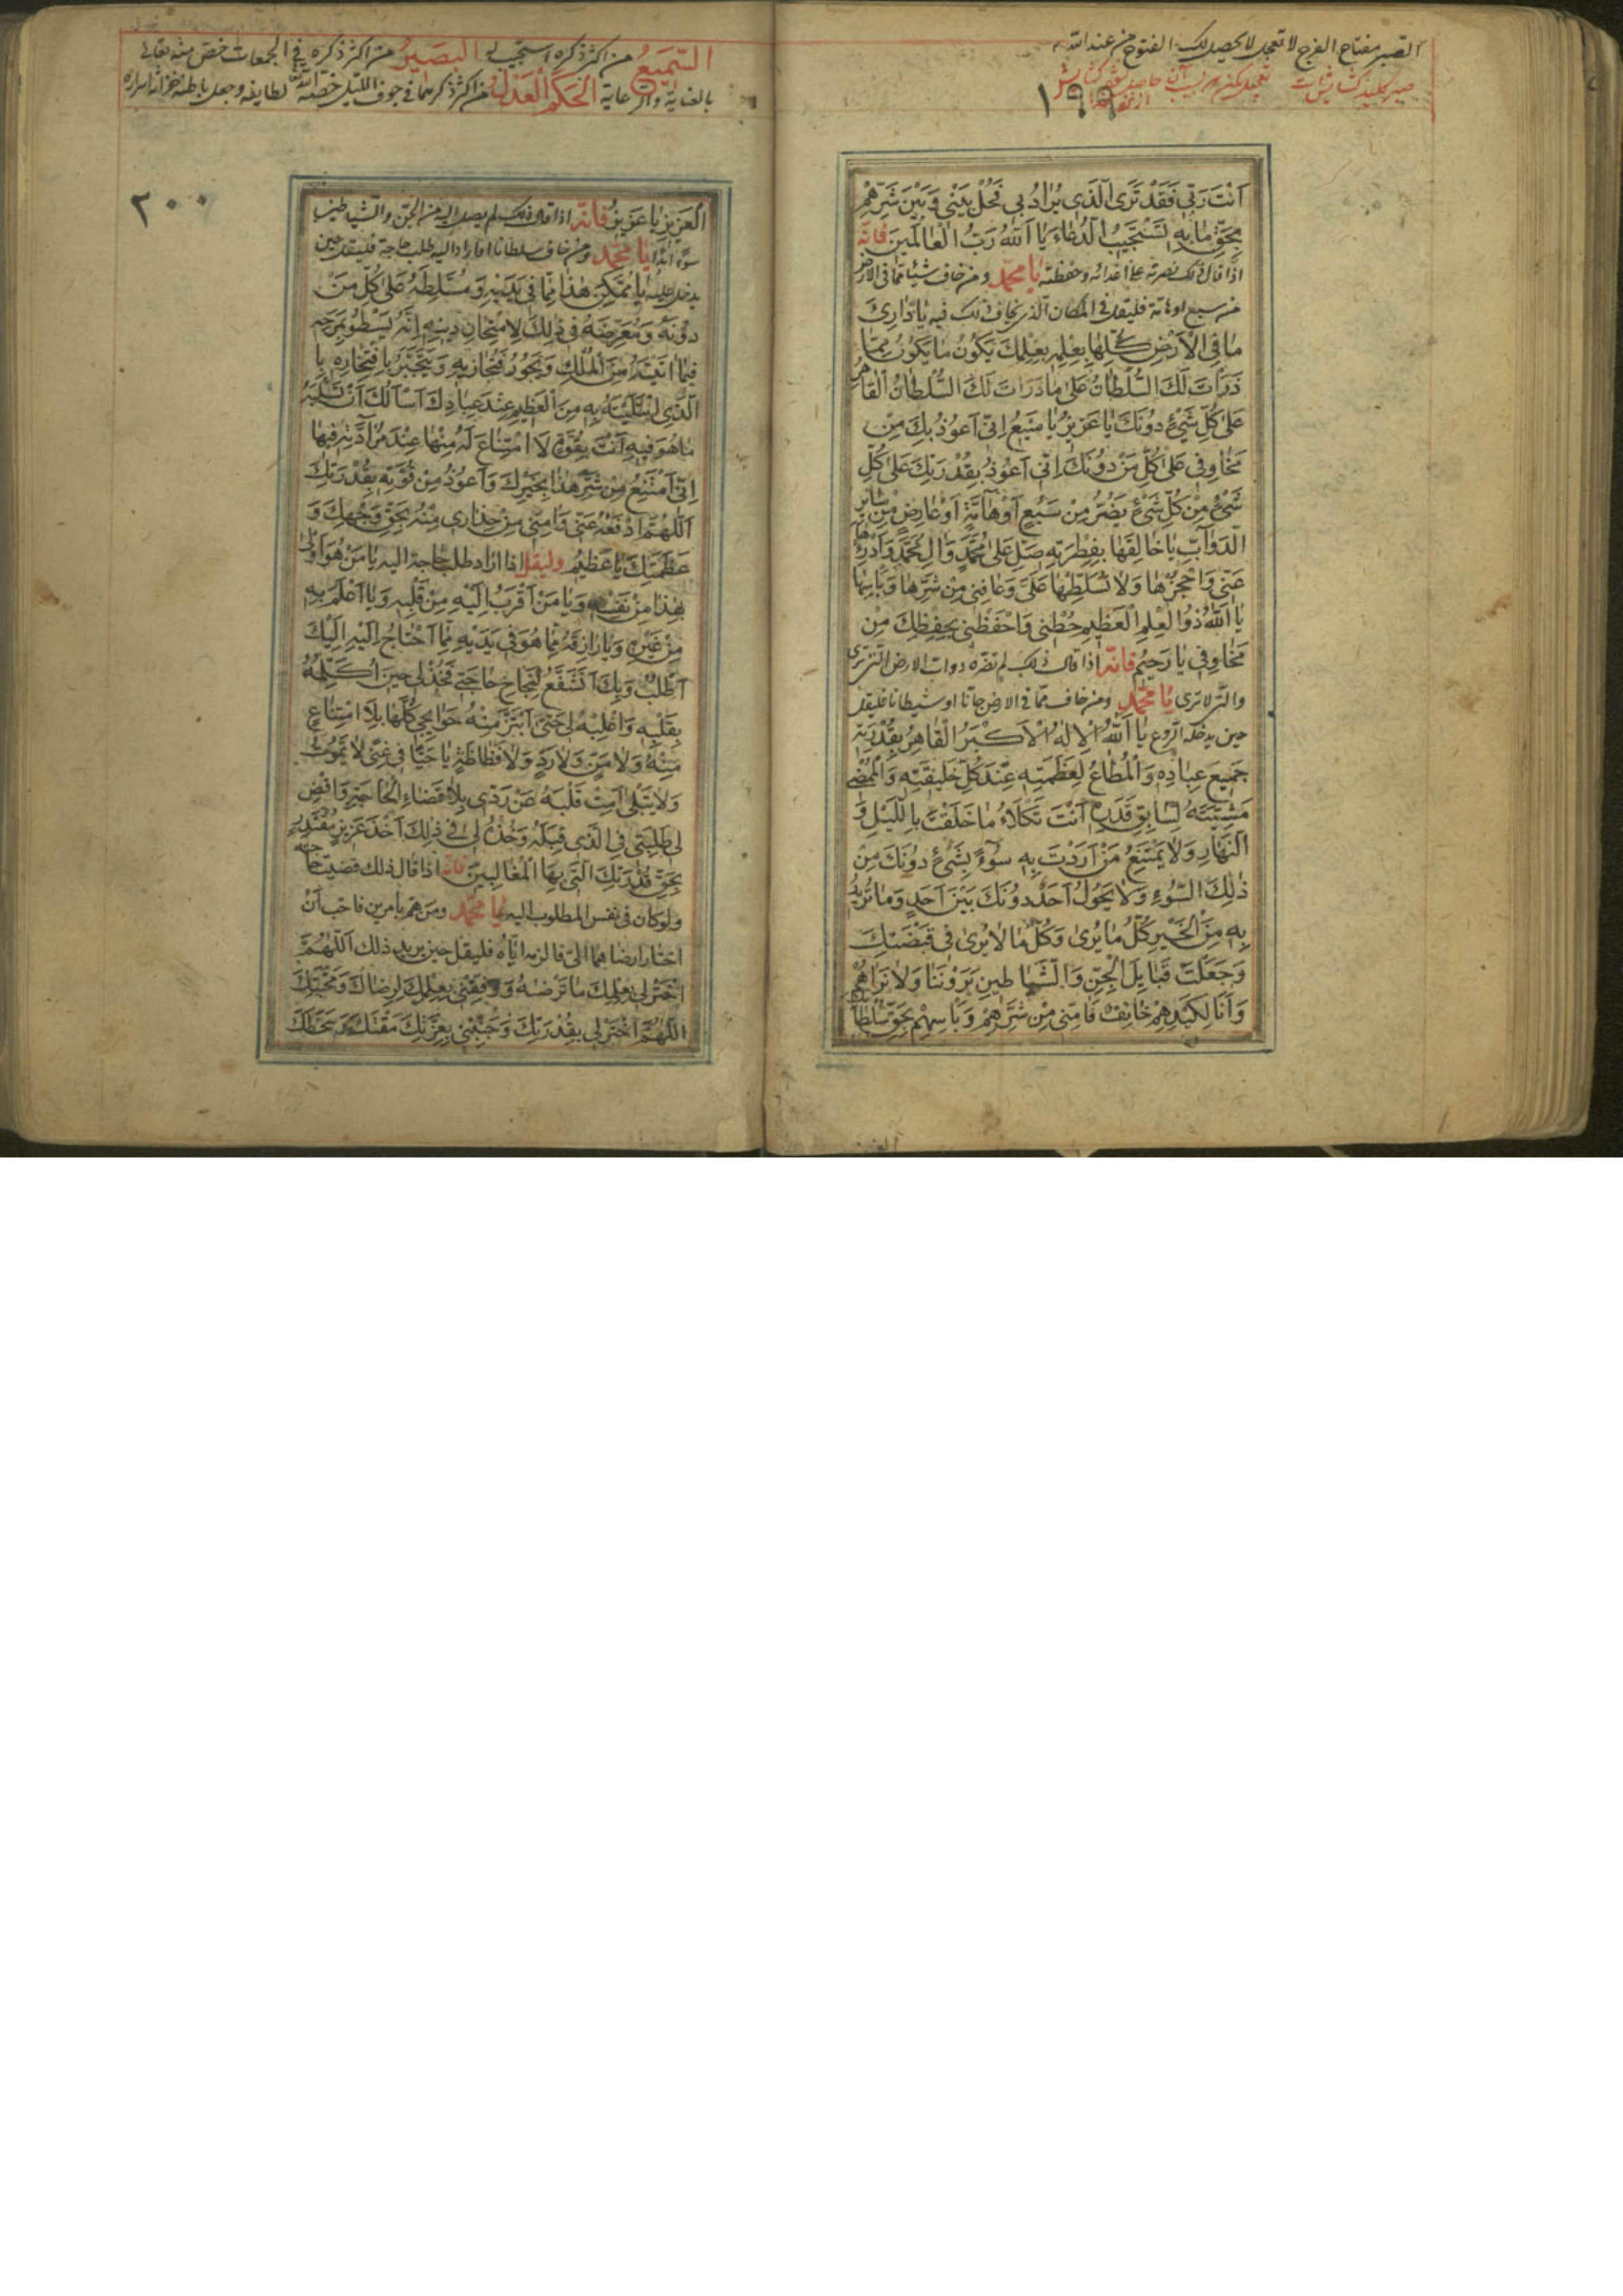 الصبر مفتاح الفرج لا تعجل لا يحصل لك الفتوح من عند الله
صبر كليد كشايش است
١٩٩
اَنْتَ رَبّي فَقَدْ تَرَى الَّذي يُرادُ بي فَحُلْ بَيْني وَبَيْنَ شَرِّهِمْ
بِحَقِّ ما بِهِ تَسْتَجيبُ الدُّعاءَ يا اَللهُ رَبُّ الْعالَمينَ فانّه
اذا قال ذلك نصرته على اعدائه وحفظته يا محمّد ومن خاف شيئا ممّا في الارض
من سبع او هامّة فليقل في المكان الذي يخاف ذلك فيه يا ذارِئَ
ما فِي الْاَرْضِ كُلِّها بِعِلْمِهِ بِعِلْمِكَ يَكُونُ ما يَكُونُ مِمّا
ذَرَأْتَ لَكَ السُّلْطانُ عَلى ما ذَرَأْتَ لَكَ السُّلْطانُ الْقاهِرُ
عَلى كُلِّ شَيْءٍ دُونَكَ يا عَزيزُ يا مَنيعُ اِنّي اَعُوذُ بِكَ مِنْ
مَخاوِفي عَلى كُلِّ مَنْ دُونَكَ اِنّي اَعُوذُ بِقُدْرَتِكَ عَلى كُلِّ
شَيْءٍ مِنْ كُلِّ شَيْءٍ يَضُرُّ مِنْ سَبُعٍ اَوْ هامَّةٍ اَوْ عارِضٍ مِنْ سائِرِ
الدَّوابِّ يا خالِقَها بِفِطْرَتِهِ صَلِّ عَلى مُحَمَّدٍ وَالِ مُحَمَّدٍ وَادْرَأْها
عَنّي وَاحْجُزْها وَلا تُسَلِّطْها عَلَيَّ وَعافِني مِنْ شَرِّها وَبَأْسِها
يا اَللهُ ذُو الْعِلْمِ الْعَظيمِ حُطْني وَاحْفَظْني بِحِفْظِكَ مِنْ
مَخاوِفي يا رَحيمُ فانّه اذا قال ذلك لم تضره دواب الارض التي ترى
والتي لا ترى يا محمّد ومن خاف ممّا في الارض جانّا او شيطانا فليقل
حين يدخله الرّوع يا اَللهُ الْاِلهُ الْاَكْبَرُ الْقاهِرُ بِقُدْرَتِهِ
جَميعَ عِبادِهِ وَالْمُطاعُ لِعَظَمَتِهِ عِنْدَ كُلِّ خَليقَتِهِ وَالْمُمْضي
مَشِيَّتَهُ لِسابِقِ قَدَرِهِ اَنْتَ تَكْلَأُ ما خَلَقْتَ بِاللَّيْلِ وَ
النَّهارِ وَلا يَمْتَنِعُ مَنْ اَرَدْتَ بِهِ سُوءً بِشَيْءٍ دُونَكَ مِنْ
ذلِكَ السُّوءِ وَلا يَحُولُ اَحَدٌ دُونَكَ بَيْنَ اَحَدٍ وَما تُريدُ
بِهِ مِنَ الْخَيْرِ كُلُّ ما يُرى وَكُلُّ ما لا يُرى في قَبْضَتِكَ
وَجَعَلْتَ قَبايِلَ الْجِنِّ وَالشَّياطينِ يَرَوْنَنا وَلا نَراهُمْ
وَاَنَا لِكَيْدِهِمْ خائِفٌ فَامِنّي مِنْ شَرِّهِمْ وَبَأْسِهِمْ بِحَقِّ سُلْطانِكَ
السَّميعُ من اكثر ذكره استجيب له البَصيرُ من اكثر ذكره في الجمعات خصّ منه تعالى
بالعناية والرعاية الحَكَمُ العَدْلُ من اكثر ذكرهما في جوف الليل خصّه الله لطايفه وجعل باطنه خزانة اسراره
٢٠٠
الْعَزيزِ يا عَزيزُ فانّه اذا قال ذلك لم يصل اليه من الجنّ والشياطين
سوء ابدا يا محمّد ومن خاف سلطانا او اراد اليه طلب حاجة فليقل حين
يدخل عليه يا مُمَكِّنَ هذا مِمّا في يَدَيْهِ وَمُسَلِّطَهُ عَلى كُلِّ مَنْ
دُونَهُ وَمُعَرِّضَهُ في ذلِكَ لِامْتِحانِ دينِهِ اِنَّهُ يَسْطُو بِمَرَحِهِ
فيما اتَيْتَهُ مِنَ الْمُلْكِ وَيَجُورُ فيما زِيهِ وَيَتَجَبَّرُ بِافْتِخارِهِ بِا
الَّذي ابْتَلَيْتَهُ بِهِ مِنَ الْعَظيمِ عِنْدَ عِبادِكَ اَسْاَلُكَ اَنْ تَسْلُبَهُ
ما هُوَ فيهِ اَنْتَ بِقُوَّةٍ لَا امْتِناعَ لَهُ مِنْها عِنْدَ مَنْ اَرَدْتَهُ فيها
اِنّي اَمْتَنِعُ مِنْ شَرِّ هذا بِخَيْرِكَ وَاَعُوذُ مِنْ قُوَّتِهِ بِقُدْرَتِكَ
اَللّهُمَّ ادْفَعْهُ عَنّي وَامِنّي مِنْ حِذاري مِنْهُ بِحَقِّ وَجْهِكَ وَ
عَظَمَتِكَ يا عَظيمُ وليقل اذا اراد طلب حاجة اليه يا مَنْ هُوَ اَوْلى
بِهذا مِنْ نَفْسِهِ وَيا مَنْ اَقْرَبُ اِلَيْهِ مِنْ قَلْبِهِ وَيا اَعْلَمَ بِهِ
مِنْ غَيْرِهِ وَيا رازِقَهُ مِمّا هُوَ في يَدَيْهِ مِمّا اَحْتاجُ اِلَيْهِ اِلَيْكَ
اَطْلُبُ وَبِكَ اَتَشَفَّعُ لِنَجاحِ حاجَتي فَخُذْ لي حينَ اُكَلِّمُهُ
بِقَلْبِهِ وَاغْلِبْهُ لي حَتّى اَبْتَزَّ مِنْهُ حَوائِجي كُلَّها بِلَا امْتِناعٍ
مِنْهُ وَلا مَنٍّ وَلا رَدٍّ وَلا فَظاظَةٍ يا حَيّا في غِنًى لا يَمُوتُ
وَلا يَبْلى اَمِتْ قَلْبَهُ عَنْ رَدّي بِلا قَضاءِ الْحاجَةِ وَاقْضِ
لي طَلِبَتي فِي الَّذي قِبَلَهُ وَخُذْهُ لي في ذلِكَ اَخْذَ عَزيزٍ مُقْتَدِرٍ
بِحَقِّ قُدْرَتِكَ الَّتي بِهَا الْمُغالِبينَ فانه اذا قال ذلك قضيت حاجته
ولو كان في نفس المطلوب اليه يا محمّد ومن همّ بامرين فاحبّ ان
اختار ارضاهما اليّ فالزمه ايّاه فليقل حين يريد ذلك اَللّهُمَّ
اخْتَرْ لي بِعِلْمِكَ ما تَرْضهُ وَوَفِّقْني بِعِلْمِكَ لِرِضاكَ وَمَحَبَّتِكَ
اللّهُمَّ اخْتَرْ لي بِقُدْرَتِكَ وَجَنِّبْني بِعِزَّتِكَ مَقْتَكَ وَسَخَطَكَ